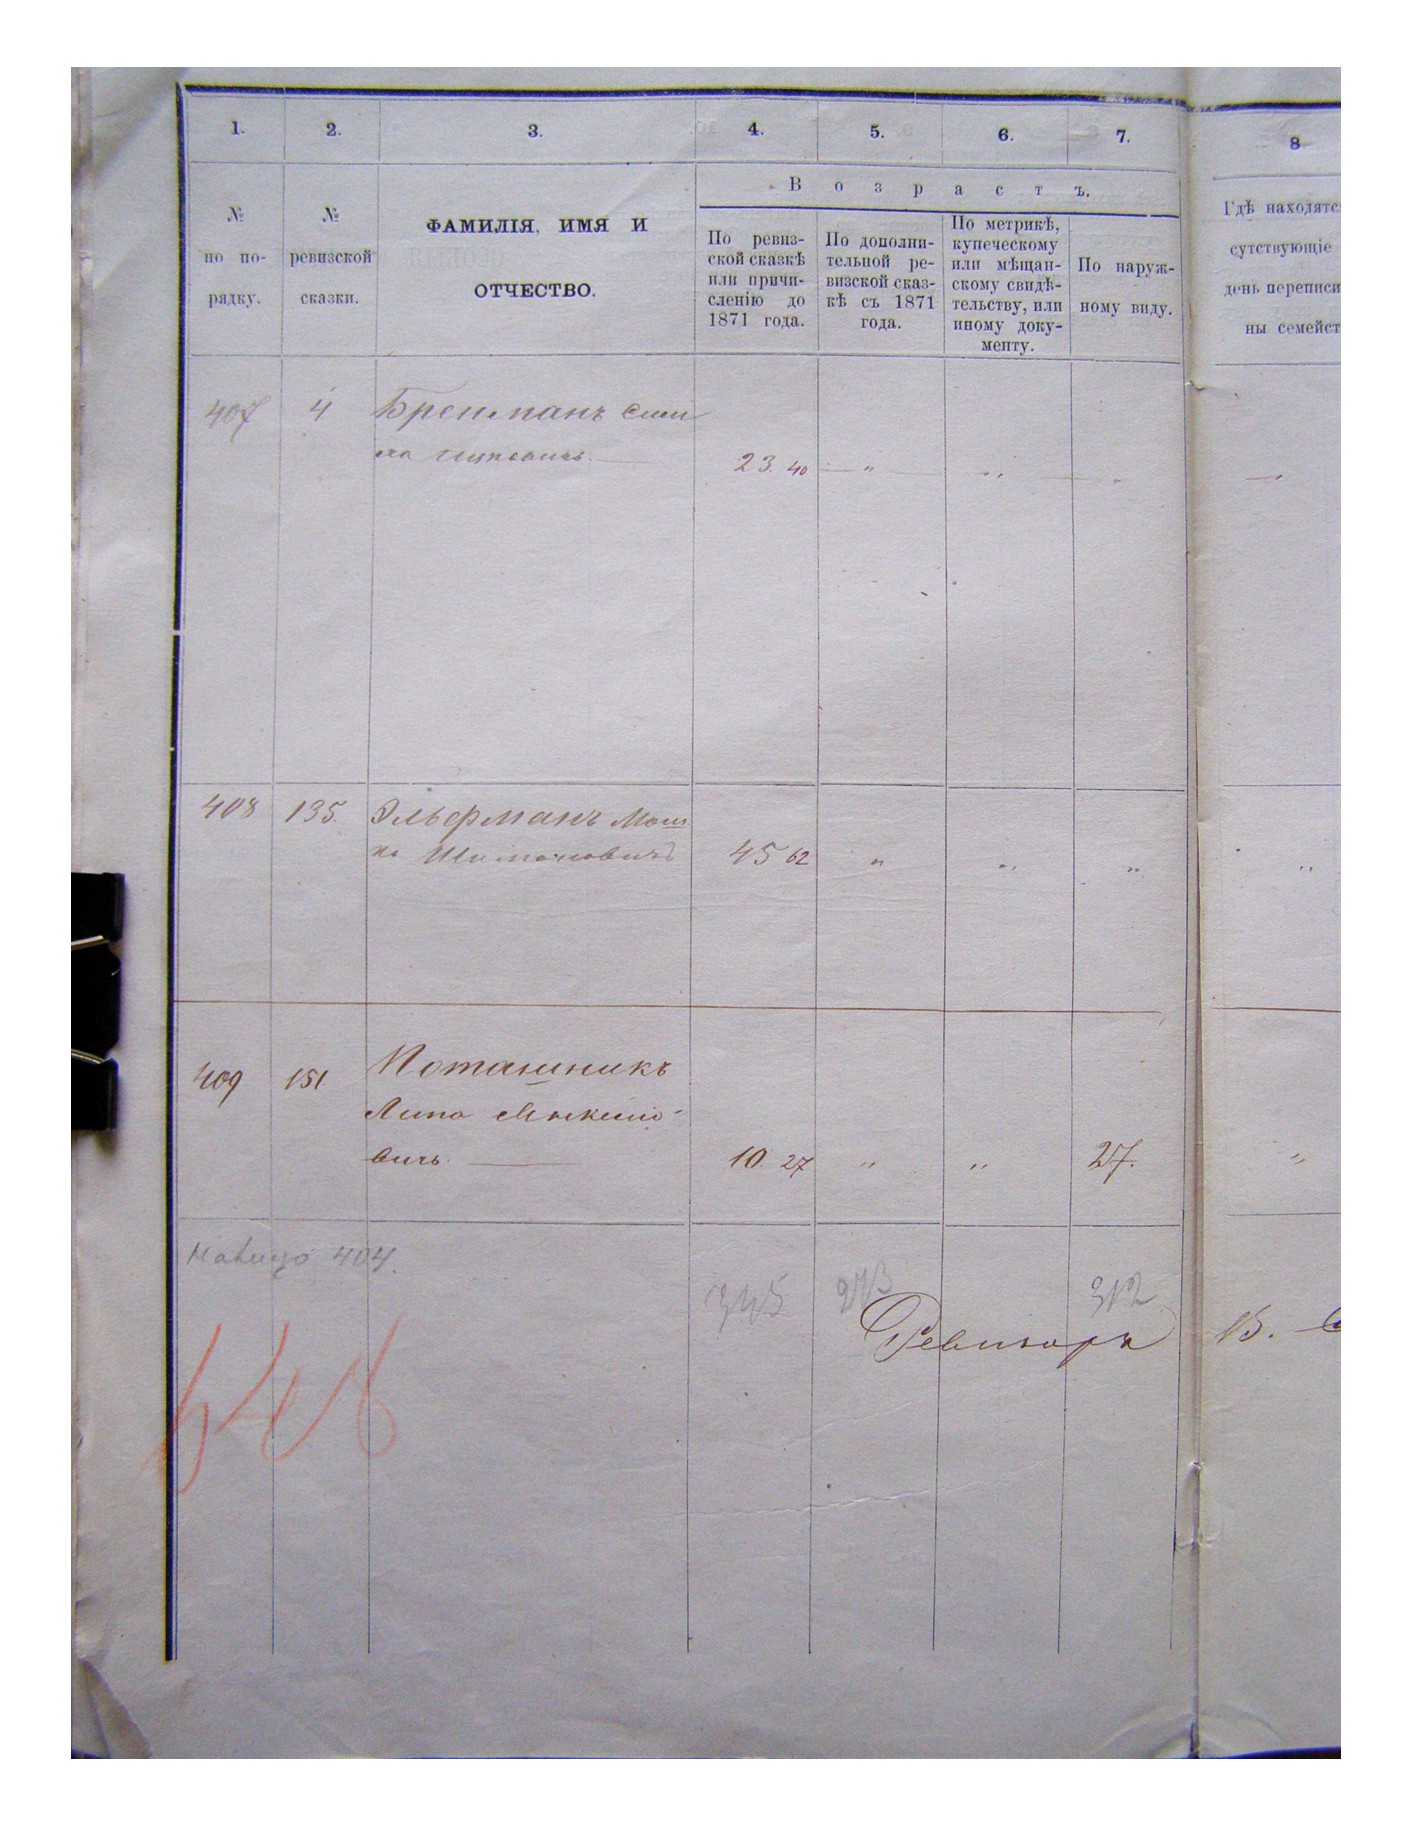 1. 2. 3. 4. 5. 6. 7. 8
Возрастъ.
№ по по- рядку.
№ ревизской сказки.
ФАМИЛІЯ, ИМЯ И
ОТЧЕСТВО.
По ревиз-
ской сказкѣ
или причи-
сленію до
1871 года.
По дополни-
тельной ре-
визской сказ-
кѣ съ 1871
года.
По метрикѣ,
купеческому
или мѣщан-
скому свидѣ-
тельству, или
иному доку-
менту.
По наруж-
ному виду.
Гдѣ находятся
сутствующіе
день переписи
ны семейст
407 4 Бренманъ Сим
ха Ицковичъ 23. 40 " "
408 135. Эльфманъ Мош
ко Шимоновичъ 45 62 " " " "
409 151 Поташникъ
Липа
вичъ. 10. 27 " " 27. "
404.
345 273 312
Ревизоръ В.